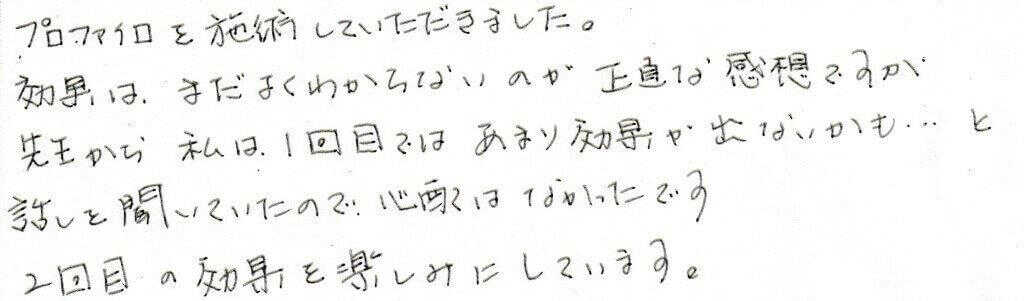 プロファイロを施術していただきました。
効果は、まだよくわからないのが正直な感想ですが
先生から 私は、1回目ではあまり効果が出ないかも… と
話しを聞いていたので、心配はなかったです
2回目の効果を楽しみにしています。